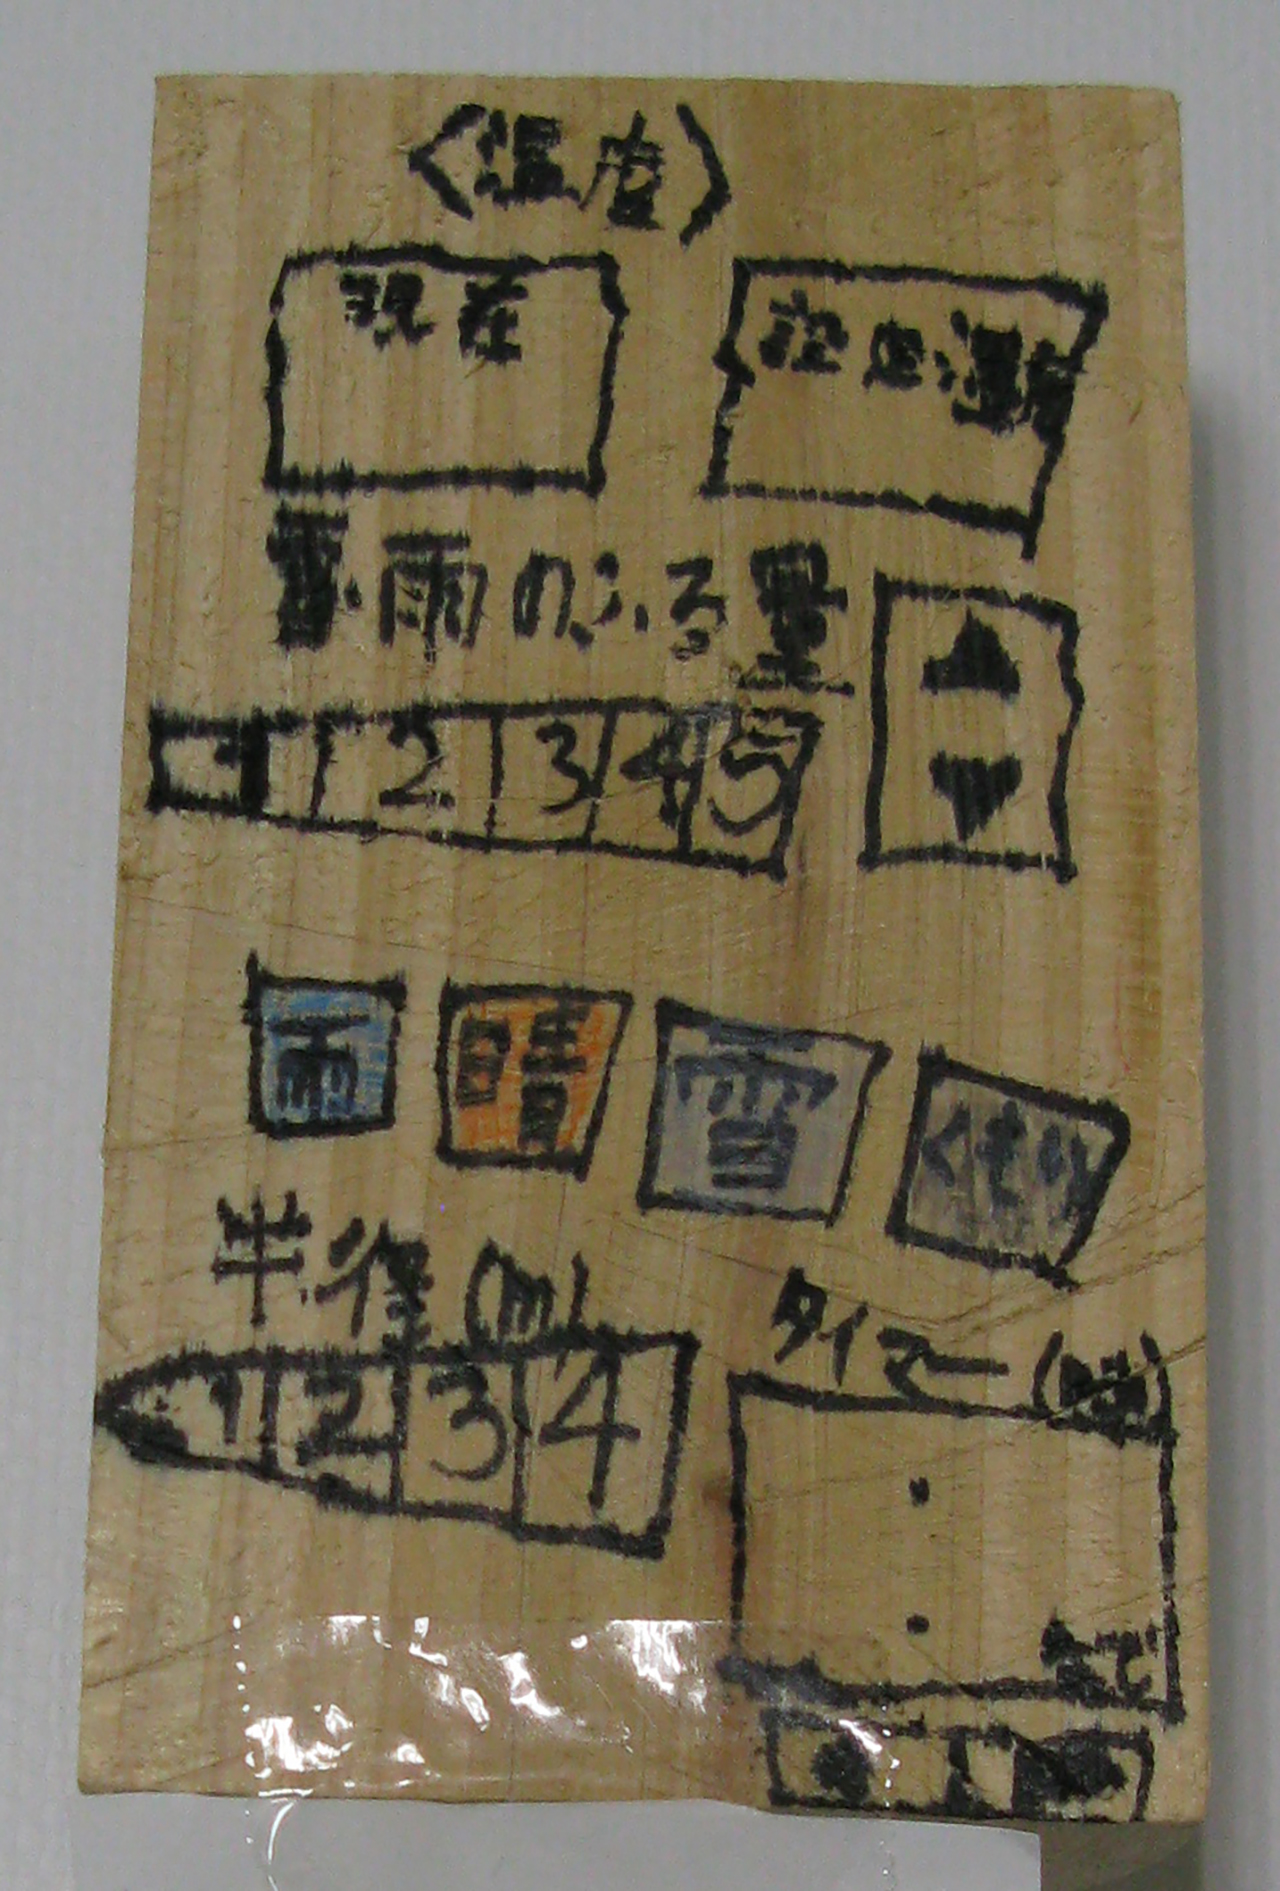 〈温度〉
現在 設定温度
雪・雨のふる量
1 2 3 4 5
雨 晴 雪 くもり
半径(m)
1 2 3 4
タイマー
:
まで